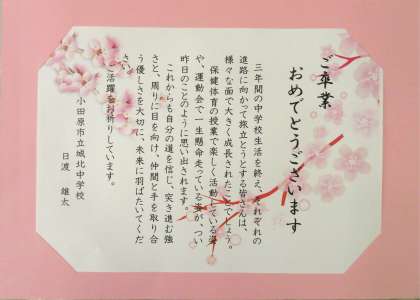 ご卒業
おめでとうございます
三年間の中学校生活を終え、それぞれの
進路に向かって旅立とうとする皆さんは、
様々な面で大きく成長されたことでしょう。
保健体育の授業で楽しく活動している姿
や、運動会で一生懸命走っている姿が、つい
昨日のことのように思い出されます。
これからも自分の道を信じ、突き進む強
さと、周りに目を向け、仲間と手を取り合
う優しさを大切に、未来に羽ばたいてくだ
さい。
ご活躍をお祈りしています。
小田原市立城北中学校
日渡 雄太